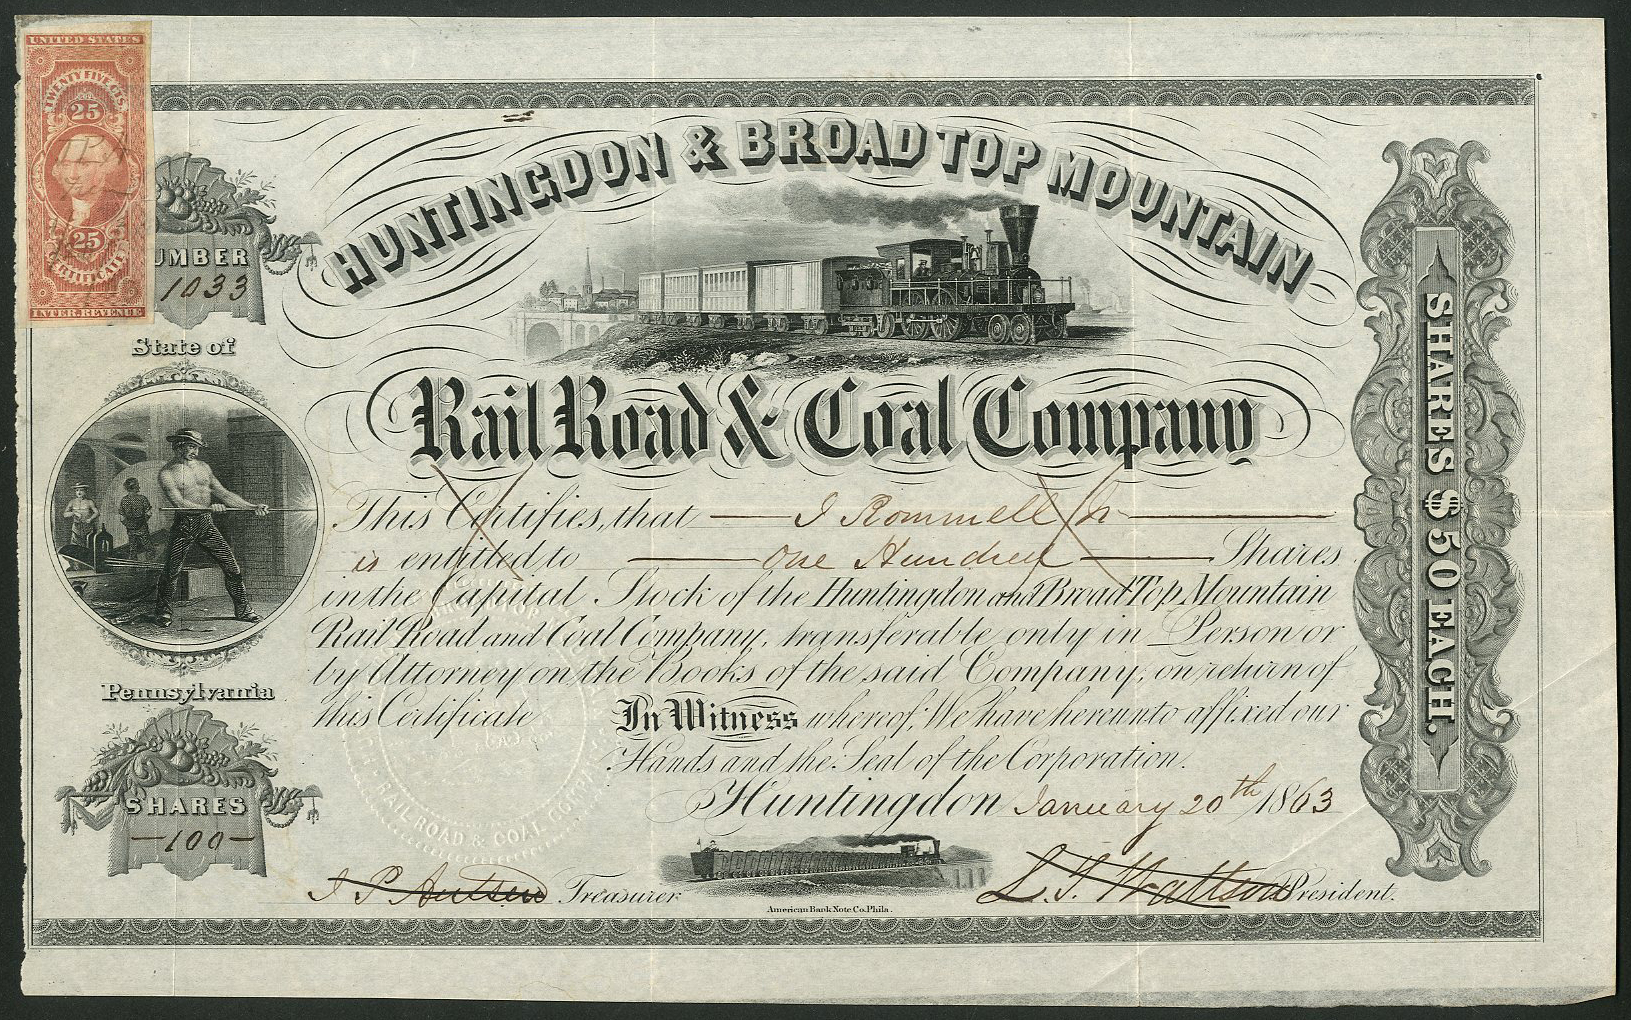 UNITED STATES
TWENTY FIVE CTS.
25
25
INTER. REVENUE
UMBER
1033
HUNTINGDON & BROAD TOP MOUNTAIN
Rail Road & Coal Company
State of
Pennsylvania
SHARES
—100—
SHARES $50 EACH.
This Certifies, that — J Rommell Jr —
is entitled to — One Hundred — Shares
in the Capital Stock of the Huntingdon and Broad Top Mountain
Rail Road and Coal Company, transferable only in Person or
by Attorney on the Books of the said Company, on return of
this Certificate In Witness whereof, We have hereunto affixed our
Hands and the Seal of the Corporation.
Huntingdon January 20th 1863
RAILROAD & COAL COMPA
J. P. Treasurer
L. T. Wattson President.
American Bank Note Co. Phila.